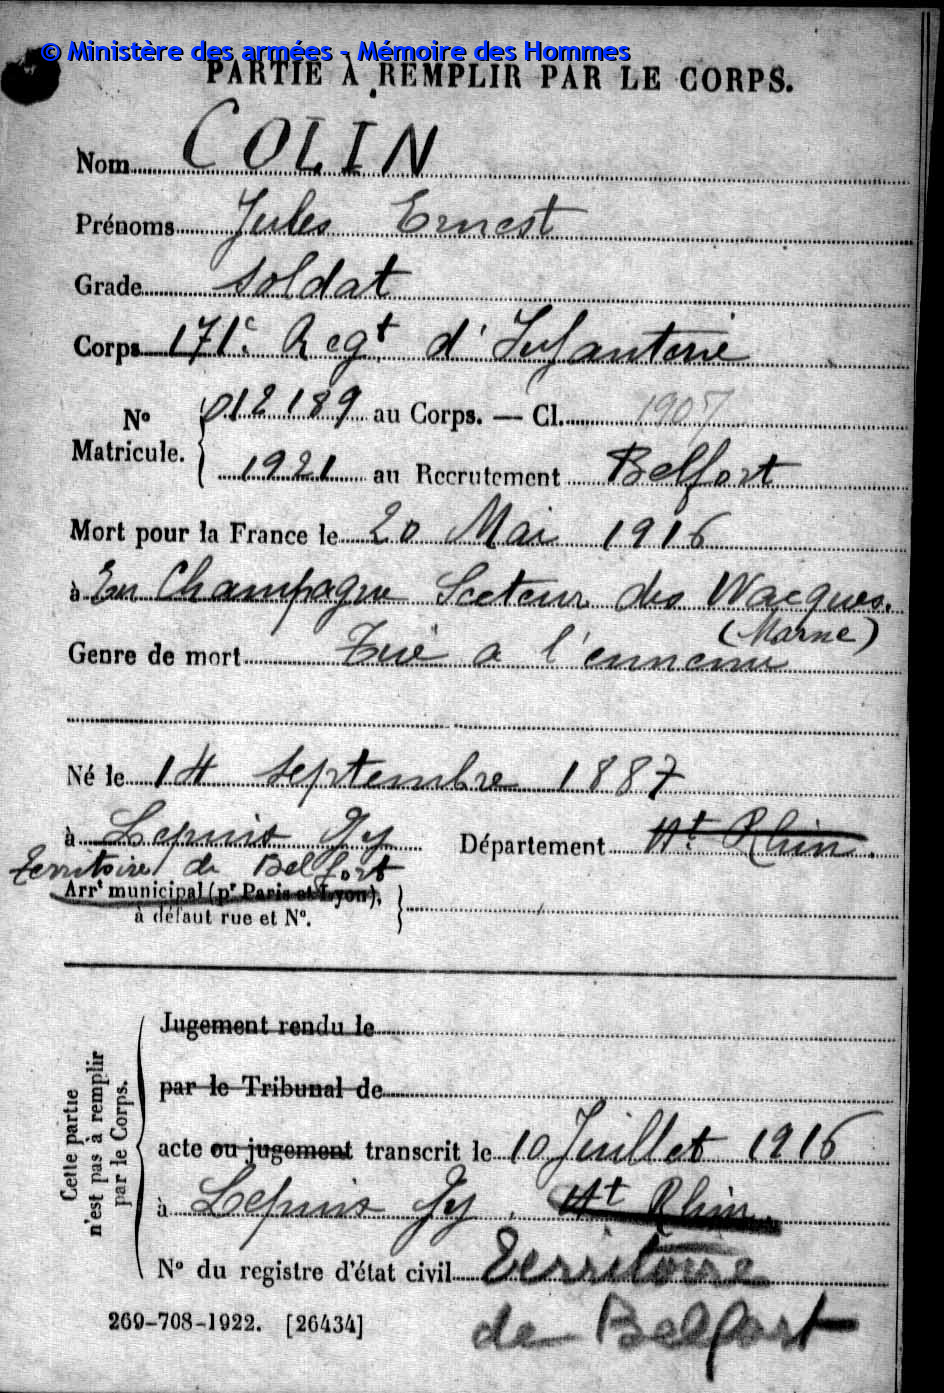 © Ministère des armées - Mémoire des Hommes
PARTIE À REMPLIR PAR LE CORPS.
Nom COLIN
Prénoms Jules Ernest
Grade soldat
Corps 171e Regt d'Infanterie
No Matricule. { 012189 au Corps. — Cl. 1907
1921 au Recrutement Belfort
Mort pour la France le 20 Mai 1916
à En Champagne Secteur des Wacques.
(Marne)
Genre de mort Tué a l'ennemi
Né le 14 septembre 1887
à Lepuis Gy Département Ht Rhin.
Territoire de Belfort
Arrt municipal (pr Paris et Lyon),
à défaut rue et No.
Cette partie n'est pas à remplir par le Corps.
Jugement rendu le
par le Tribunal de
acte ou jugement transcrit le 10 Juillet 1916
à Lepuis Gy. Ht Rhin.
No du registre d'état civil Territoire
de Belfort
269-708-1922. [26434]